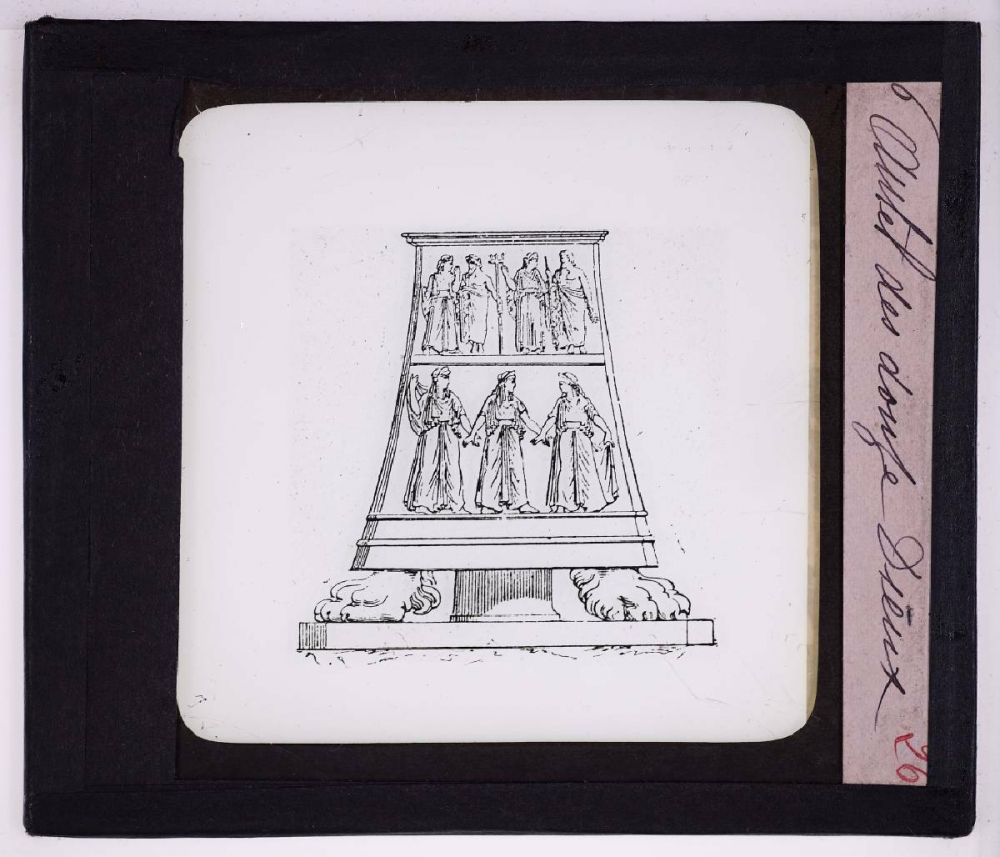 6 Autel des douze Dieux
26